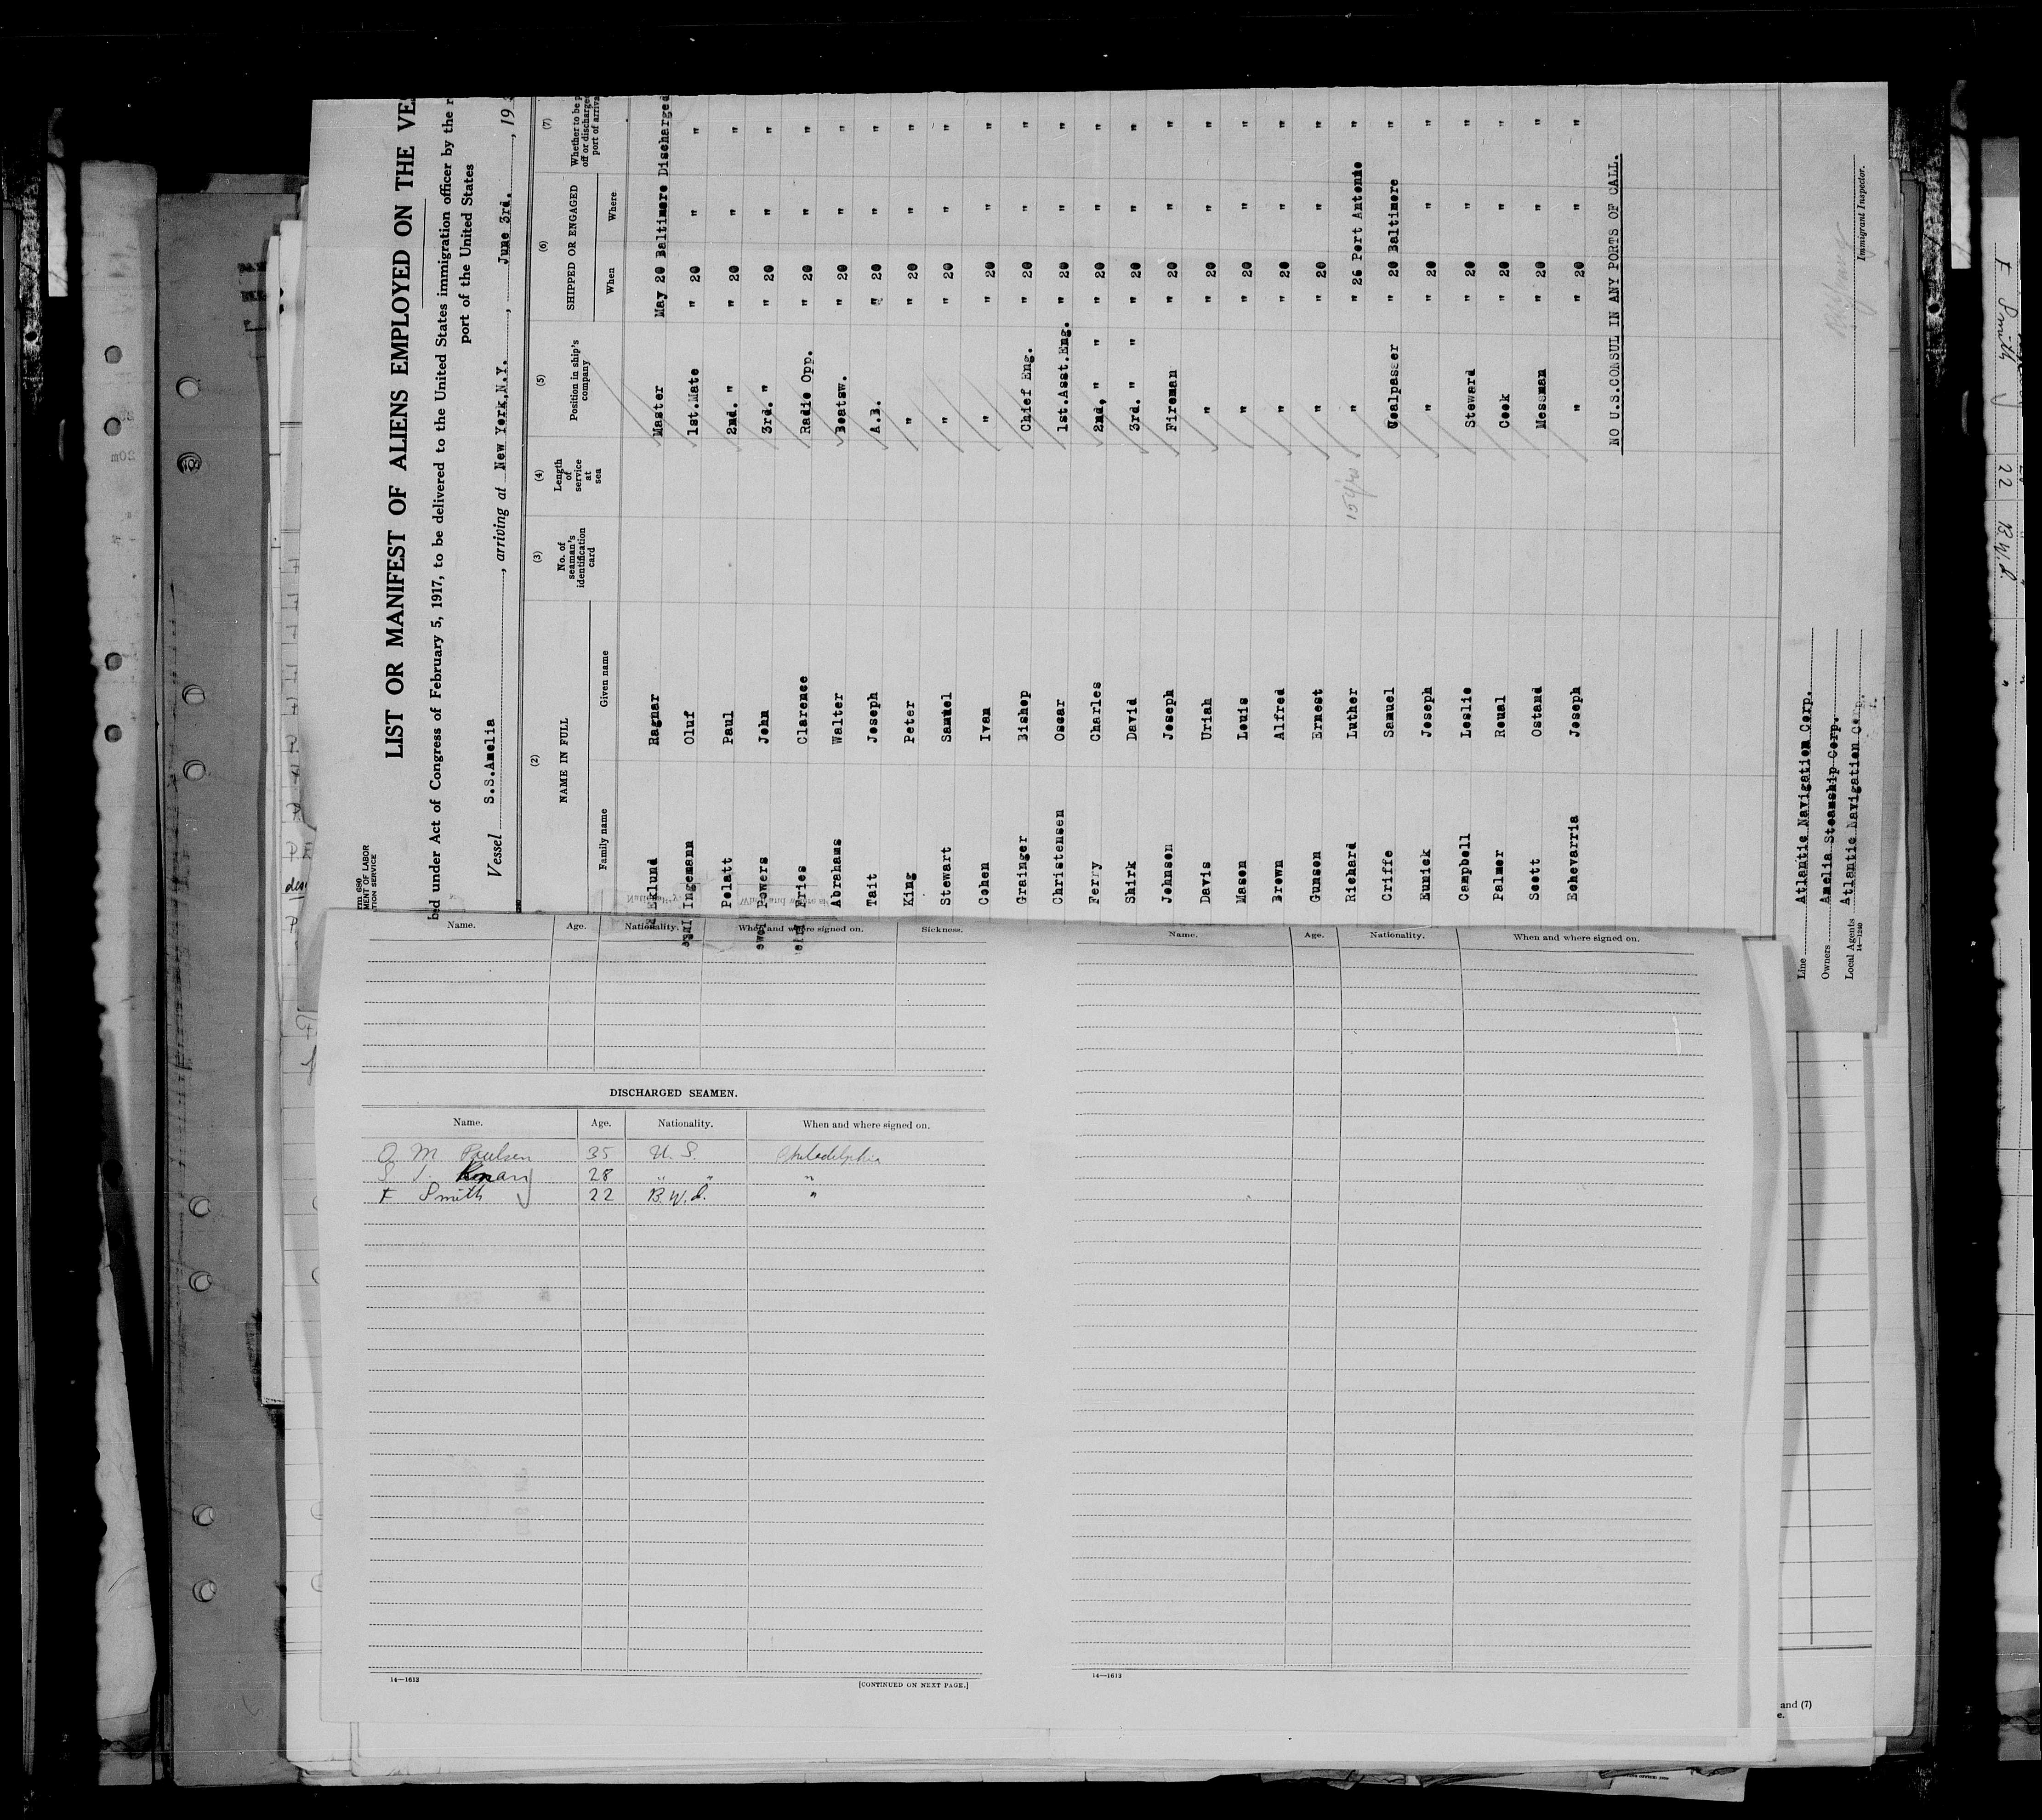 LIST OR MANIFEST OF ALIENS EMPLOYED ON THE VE
ed under Act of Congress of February 5, 1917, to be delivered to the United States immigration officer by the r
port of the United States
Vessel S.S.Amelia, arriving at New York,N.Y., June 3rd., 19
(2) (3) (4) (5) (6) (7)
NAME IN FULL No. of seaman's identification card Length of service at sea Position in ship's company SHIPPED OR ENGAGED Whether to be p off or discharged port of arriva
Family name Given name When Where
Eklund Ragnar Master May 20 Baltimore Discharged
Ingemann Oluf 1st.Mate " 20 " "
Pelatt Paul 2nd. " " 20 " "
Powers John 3rd. " " 20 " "
Fries Clarence Radio Opp. " 20 " "
Abrahams Walter Boatsw. " 20 " "
Tait Joseph A.B. " 20 " "
King Peter " " 20 " "
Stewart Samuel " " 20 " "
Cohen Ivan " " 20 " "
Grainger Bishop Chief Eng. " 20 " "
Christensen Oscar 1st.Asst.Eng. " 20 " "
Ferry Charles 2nd, " " " 20 " "
Shirk David 3rd. " " " 20 " "
Johnson Joseph Fireman " 20 " "
Davis Uriah " " 20 " "
Mason Louis " " 20 " "
Brown Alfred " " 20 " "
Gunson Ernest " " 20 " "
Richard Luther 15 yrs " " 26 Port Antonio "
Criffe Samuel Coalpasser " 20 Baltimore "
Eunick Joseph " " 20 " "
Campbell Leslie Steward " 20 " "
Palmer Roual Cook " 20 " "
Scott Ostand Messman " 20 " "
Echevarria Joseph " " 20 " "
NO U.S.CONSUL IN ANY PORTS OF CALL.
Line Atlantic Navigation Corp.
Owners Amelia Steamship Corp.
Local Agents Atlantic Navigation Corp.
14—1240
Immigrant Inspector.
Name. Age. Nationality. When and where signed on. Sickness.
DISCHARGED SEAMEN.
Name. Age. Nationality. When and where signed on.
O M Paulsen 35 U. S. Philadelphia
28 " " "
F Smith 22 B. W. I. "
14—1613
[CONTINUED ON NEXT PAGE.]
Name. Age. Nationality. When and where signed on.
14—1613
and (7)
F Smith 22 B.W.I.